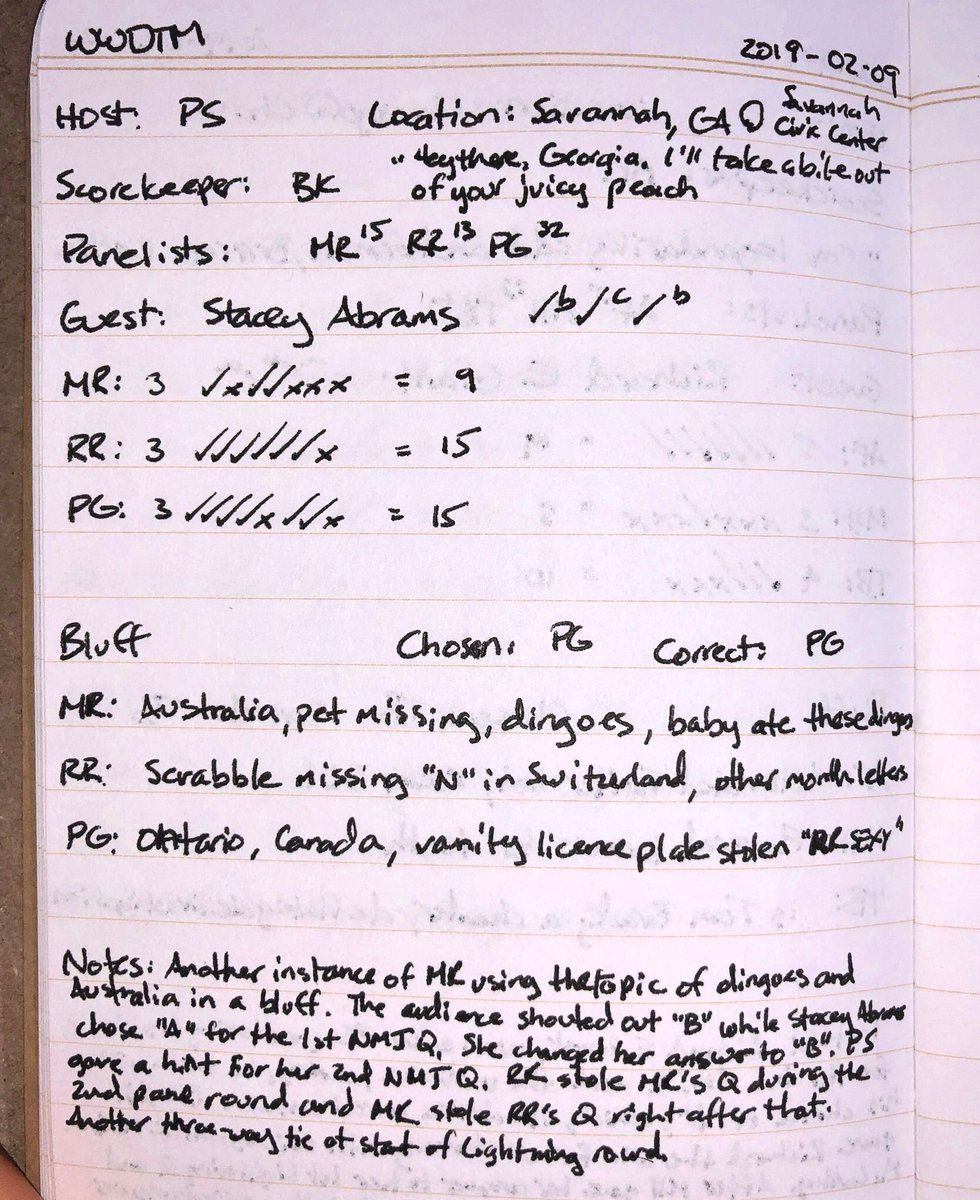 WWDTM
2019-02-09
Host: PS Location: Savannah, GA @ Savannah Civic Center
"Hey there, Georgia. I'll take a bite out
Scorekeeper: BK of your juicy peach
Panelists: MR 15 RR 13 PG 32
Guest: Stacey Abrams ✓b ✓c ✓b
MR: 3 ✓x✓✓xxx = 9
RR: 3 ✓✓✓✓✓✓x = 15
PG: 3 ✓✓✓✓x✓✓x = 15
Bluff Chosen: PG Correct: PG
MR: Australia, pet missing, dingoes, baby ate these dingos
RR: Scrabble missing "N" in Switzerland, other month letters
PG: Ontario, Canada, vanity licence plate stolen
Notes: Another instance of MR using the topic of dingoes and
Australia in a bluff. The audience shouted out "B" while Stacey Abrams
chose "A" for the 1st NMJ Q. She changed her answer to "B". PS
gave a hint for her 2nd NMJ Q. RR stole MR's Q during the
2nd panel round and MR stole RR's Q right after that.
Another three-way tie at start of Lightning round.